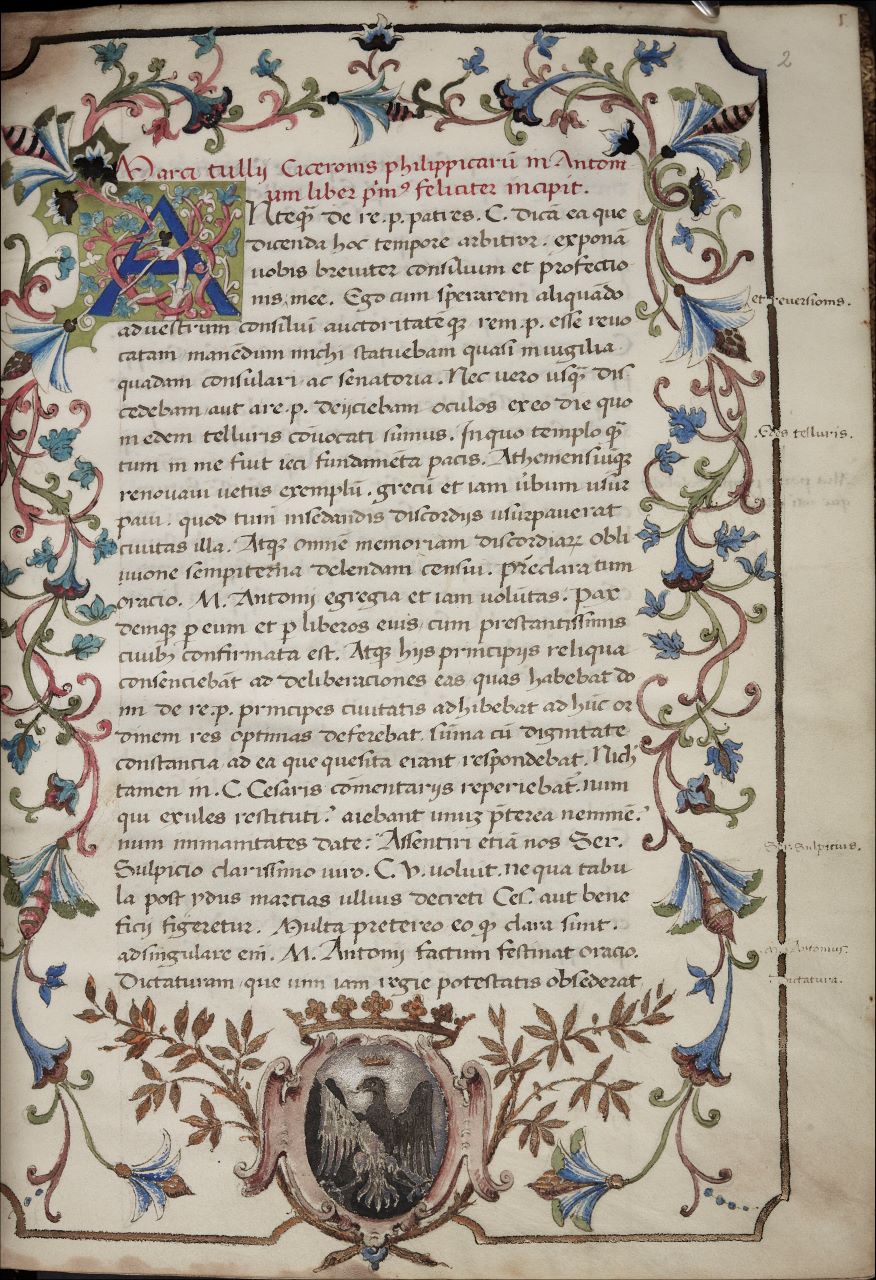 2
Marci tullij Ciceronis philippicarũ in Antoni
um liber p̃mꝰ feliciter incipit.
ANteq̃ de re.p. patres. C. dicã ea que
dicenda hoc tempore arbitror. exponã
uobis breuiter consilium et profectio
nis mee. Ego cum sperarem aliquãdo
ad uestrum consiliũ auctoritatẽqꝫ rem.p. esse reuo
catam manẽdum michi statuebam quasi in uigilia
quadam consulari ac senatoria. Nec uero usq̃ dis
cedebam aut a re.p. deijciebam oculos ex eo die quo
in edem telluris cõuocati sumus. In quo templo q̃
tum in me fuit ieci fundamẽta pacis. Atheniensiũqꝫ
renouaui uetus exemplũ. grecũ etiam ũbum usur
paui. quod tum in sedandis discordijs usurpauerat
ciuitas illa. Atqꝫ omnẽ memoriam discordiaꝝ obli
uione sempiterna delendam censui. Preclara tum
oracio. M. Antonij egregia etiam uolũtas. Pax
deniqꝫ ꝑ eum et ꝑ liberos eius cum prestantissimis
ciuibꝫ confirmata est. Atqꝫ hijs principijs reliqua
consenciebãt ad deliberaciones eas quas habebat do
mi de re.p. principes ciuitatis adhibebat ad hũc or
dinem res optimas deferebat. sũma cũ dignitate
constancia ad ea que quesita erant respondebat. Nich̃
tamen in. C. Cesaris comentarijs reperiebat̃. num
qui exules restituti? aiebant unuꝫ p̃terea neminẽ.
num immunitates date? Assentiri etiã nos Ser.
Sulpicio clarissimo uiro. C. V. uoluit. ne qua tabu
la post ydus martias ullius decreti Ces̃. aut bene
ficij figeretur. Multa pretereo eo q̃ clara sunt.
ad singulare eni. M. Antonij factum festinat oracio.
Dictaturam que uim iam regie potestatis obsederat
et reuersionis.
Edes telluris.
Ser. Sulpicius.
M. Antonius.
Dictatura.